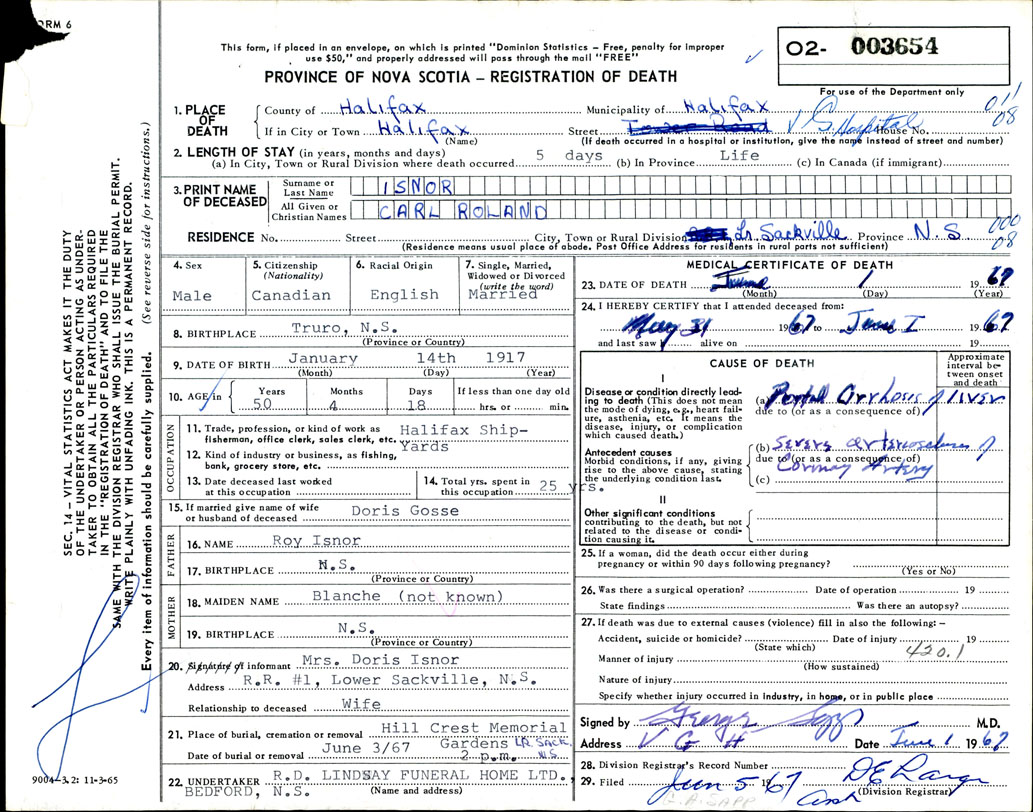 ORM 6
This form, if placed in an envelope, on which is printed "Dominion Statistics – Free, penalty for improper
use $50," and properly addressed will pass through the mail "FREE"
O2- 003654
For use of the Department only
PROVINCE OF NOVA SCOTIA – REGISTRATION OF DEATH
011
08
1. PLACE OF DEATH
County of Halifax Municipality of Halifax
If in City or Town Halifax Street V G Hospital House No.
(Name) (If death occurred in a hospital or institution, give the name instead of street and number)
2. LENGTH OF STAY (in years, months and days)
(a) In City, Town or Rural Division where death occurred 5 days (b) In Province Life (c) In Canada (if immigrant)
3. PRINT NAME OF DECEASED
Surname or Last Name ISNOR
All Given or Christian Names CARL ROLAND
000
08
RESIDENCE No. Street City, Town or Rural Division Lr Sackville Province N.S
(Residence means usual place of abode. Post Office Address for residents in rural parts not sufficient)
4. Sex
Male
5. Citizenship
(Nationality)
Canadian
6. Racial Origin
English
7. Single, Married,
Widowed or Divorced
(write the word)
Married
8. BIRTHPLACE Truro, N.S.
(Province or Country)
9. DATE OF BIRTH January 14th 1917
(Month) (Day) (Year)
10. AGE in
Years 50
Months 4
Days 18
If less than one day old
hrs. or min.
OCCUPATION
11. Trade, profession, or kind of work as
fisherman, office clerk, sales clerk, etc. Halifax Ship-
Yards
12. Kind of industry or business, as fishing,
bank, grocery store, etc.
13. Date deceased last worked
at this occupation
14. Total yrs. spent in
this occupation 25 yrs.
15. If married give name of wife
or husband of deceased Doris Gosse
FATHER
16. NAME Roy Isnor
17. BIRTHPLACE N.S.
(Province or Country)
MOTHER
18. MAIDEN NAME Blanche (not known)
19. BIRTHPLACE N.S.
(Province or Country)
20. Signature of informant Mrs. Doris Isnor
Address R.R. #1, Lower Sackville, N.S.
Relationship to deceased Wife
21. Place of burial, cremation or removal Hill Crest Memorial
Gardens LR. SACK. N.S.
Date of burial or removal June 3/67 2 p.m.
22. UNDERTAKER R.D. LINDSAY FUNERAL HOME LTD.,
BEDFORD, N.S. (Name and address)
MEDICAL CERTIFICATE OF DEATH
23. DATE OF DEATH June 1 1967
(Month) (Day) (Year)
24. I HEREBY CERTIFY that I attended deceased from:
May 31 1967 to June 1 1967
and last saw alive on 19
CAUSE OF DEATH
Approximate
interval be-
tween onset
and death
I
Disease or condition directly lead-
ing to death (This does not mean
the mode of dying, e.g., heart fail-
ure, asthenia, etc. It means the
disease, injury, or complication
which caused death.)
(a) Portal Cirrhosis of liver
due to (or as a consequence of)
Antecedent causes
Morbid conditions, if any, giving
rise to the above cause, stating
the underlying condition last.
(b) Severe arteriosclerosis of
due to (or as a consequence of)
Coronary Artery
(c)
II
Other significant conditions
contributing to the death, but not
related to the disease or condi-
tion causing it.
25. If a woman, did the death occur either during
pregnancy or within 90 days following pregnancy?
(Yes or No)
26. Was there a surgical operation? Date of operation 19
State findings Was there an autopsy?
27. If death was due to external causes (violence) fill in also the following: –
Accident, suicide or homicide? Date of injury 19
(State which) 420.1
Manner of injury
(How sustained)
Nature of injury
Specify whether injury occurred in industry, in home, or in public place
Signed by George Sapp M.D.
Address V G H Date June 1 1967
28. Division Registrar's Record Number
29. Filed Jun 5 1967
(Division Registrar)
G.A. SAPP
SEC. 14 – VITAL STATISTICS ACT MAKES IT THE DUTY
OF THE UNDERTAKER OR PERSON ACTING AS UNDER-
TAKER TO OBTAIN ALL THE PARTICULARS REQUIRED
IN THE "REGISTRATION OF DEATH" AND TO FILE THE
SAME WITH THE DIVISION REGISTRAR WHO SHALL ISSUE THE BURIAL PERMIT.
WRITE PLAINLY WITH UNFADING INK. THIS IS A PERMANENT RECORD.
Every item of information should be carefully supplied. (See reverse side for instructions.)
9004-3.2: 11-3-65